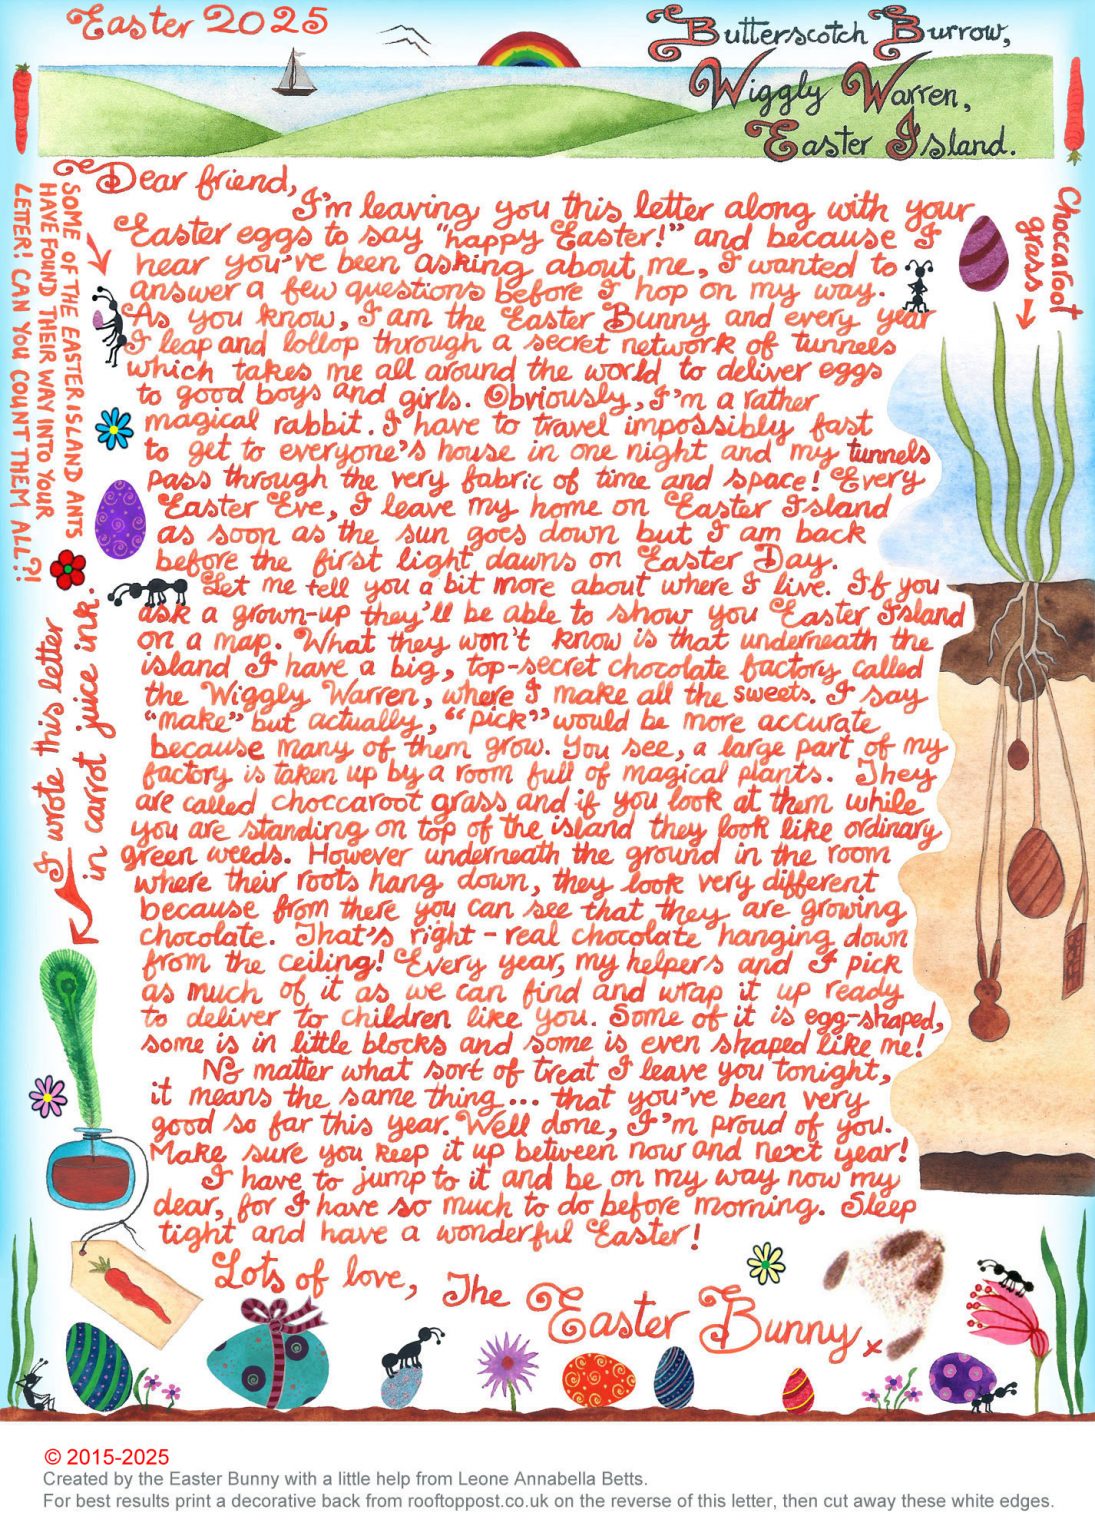 Easter 2025
Butterscotch Burrow,
Wiggly Warren,
Easter Island.
Dear friend,
I'm leaving you this letter along with your
Easter eggs to say "happy Easter!" and because I
hear you've been asking about me, I wanted to
answer a few questions before I hop on my way.
As you know, I am the Easter Bunny and every year
I leap and lollop through a secret network of tunnels
which takes me all around the world to deliver eggs
to good boys and girls. Obviously, I'm a rather
magical rabbit. I have to travel impossibly fast
to get to everyone's house in one night and my tunnels
pass through the very fabric of time and space! Every
Easter Eve, I leave my home on Easter Island
as soon as the sun goes down but I am back
before the first light dawns on Easter Day.
Let me tell you a bit more about where I live. If you
ask a grown-up they'll be able to show you Easter Island
on a map. What they won't know is that underneath the
island I have a big, top-secret chocolate factory called
the Wiggly Warren, where I make all the sweets. I say
"make" but actually, "pick" would be more accurate
because many of them grow. You see, a large part of my
factory is taken up by a room full of magical plants. They
are called choccaroot grass and if you look at them while
you are standing on top of the island they look like ordinary
green weeds. However underneath the ground in the room
where their roots hang down, they look very different
because from there you can see that they are growing
chocolate. That's right - real chocolate hanging down
from the ceiling! Every year, my helpers and I pick
as much of it as we can find and wrap it up ready
to deliver to children like you. Some of it is egg-shaped,
some is in little blocks and some is even shaped like me!
No matter what sort of treat I leave you tonight,
it means the same thing... that you've been very
good so far this year. Well done, I'm proud of you.
Make sure you keep it up between now and next year!
I have to jump to it and be on my way now my
dear, for I have so much to do before morning. Sleep
tight and have a wonderful Easter!
Lots of love,
The Easter Bunny x
SOME OF THE EASTER ISLAND ANTS
HAVE FOUND THEIR WAY INTO YOUR
LETTER! CAN YOU COUNT THEM ALL?!
I wrote this letter
in carrot juice ink.
Choccaroot
grass
© 2015-2025
Created by the Easter Bunny with a little help from Leone Annabella Betts.
For best results print a decorative back from rooftoppost.co.uk on the reverse of this letter, then cut away these white edges.